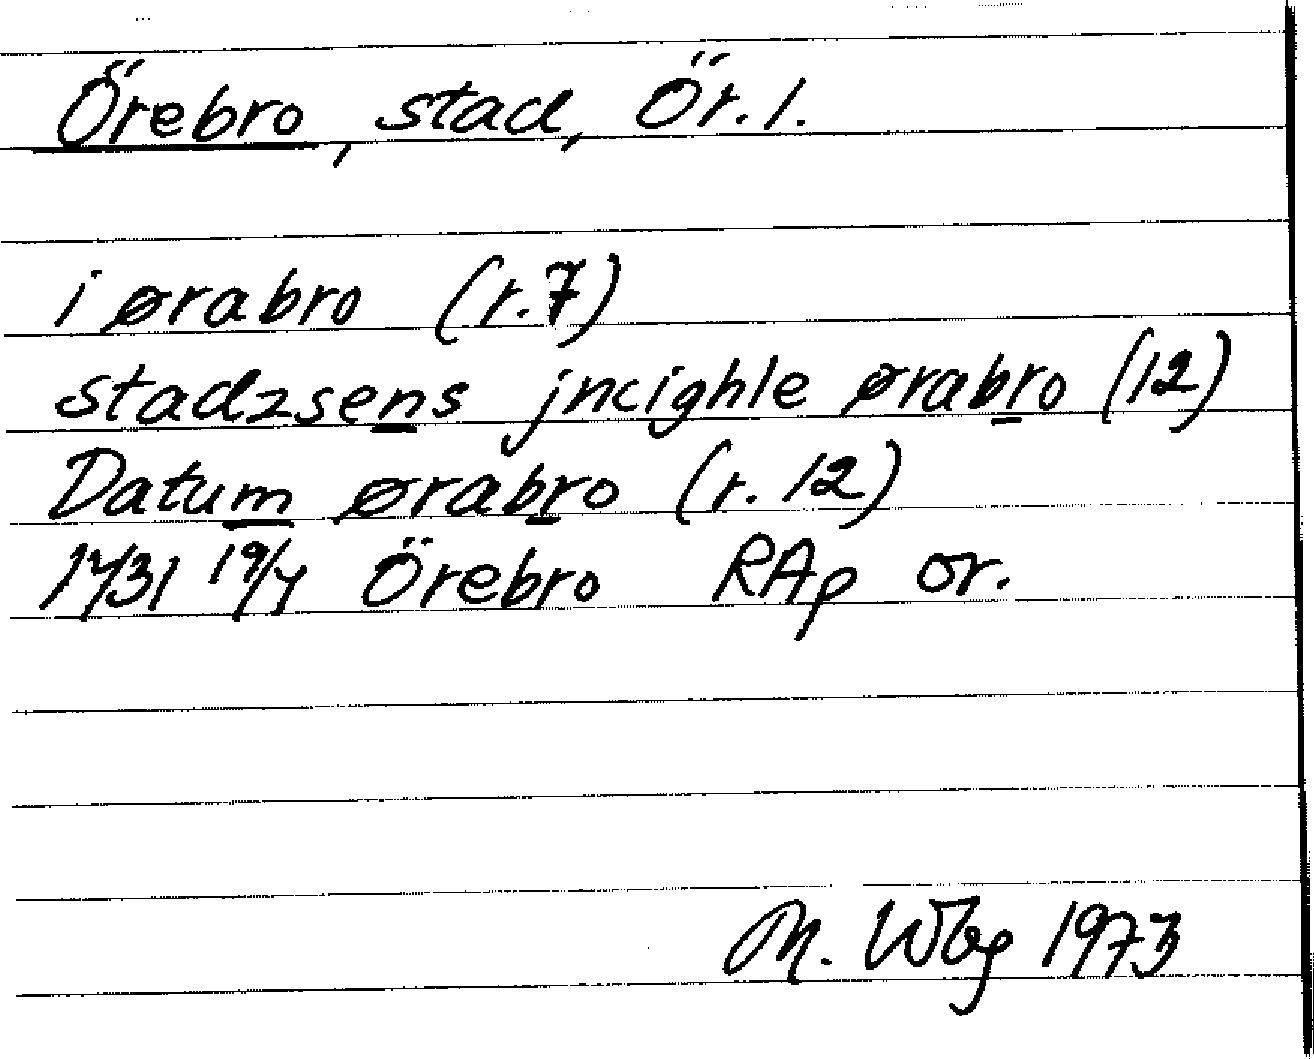 Örebro, stad, Ör. l.
i ørabro (r. 7)
stadzsens jncighle ørabro (12)
Datum ørabro (r. 12)
1431 19/4 Örebro RAp or.
M. Wbg 1973